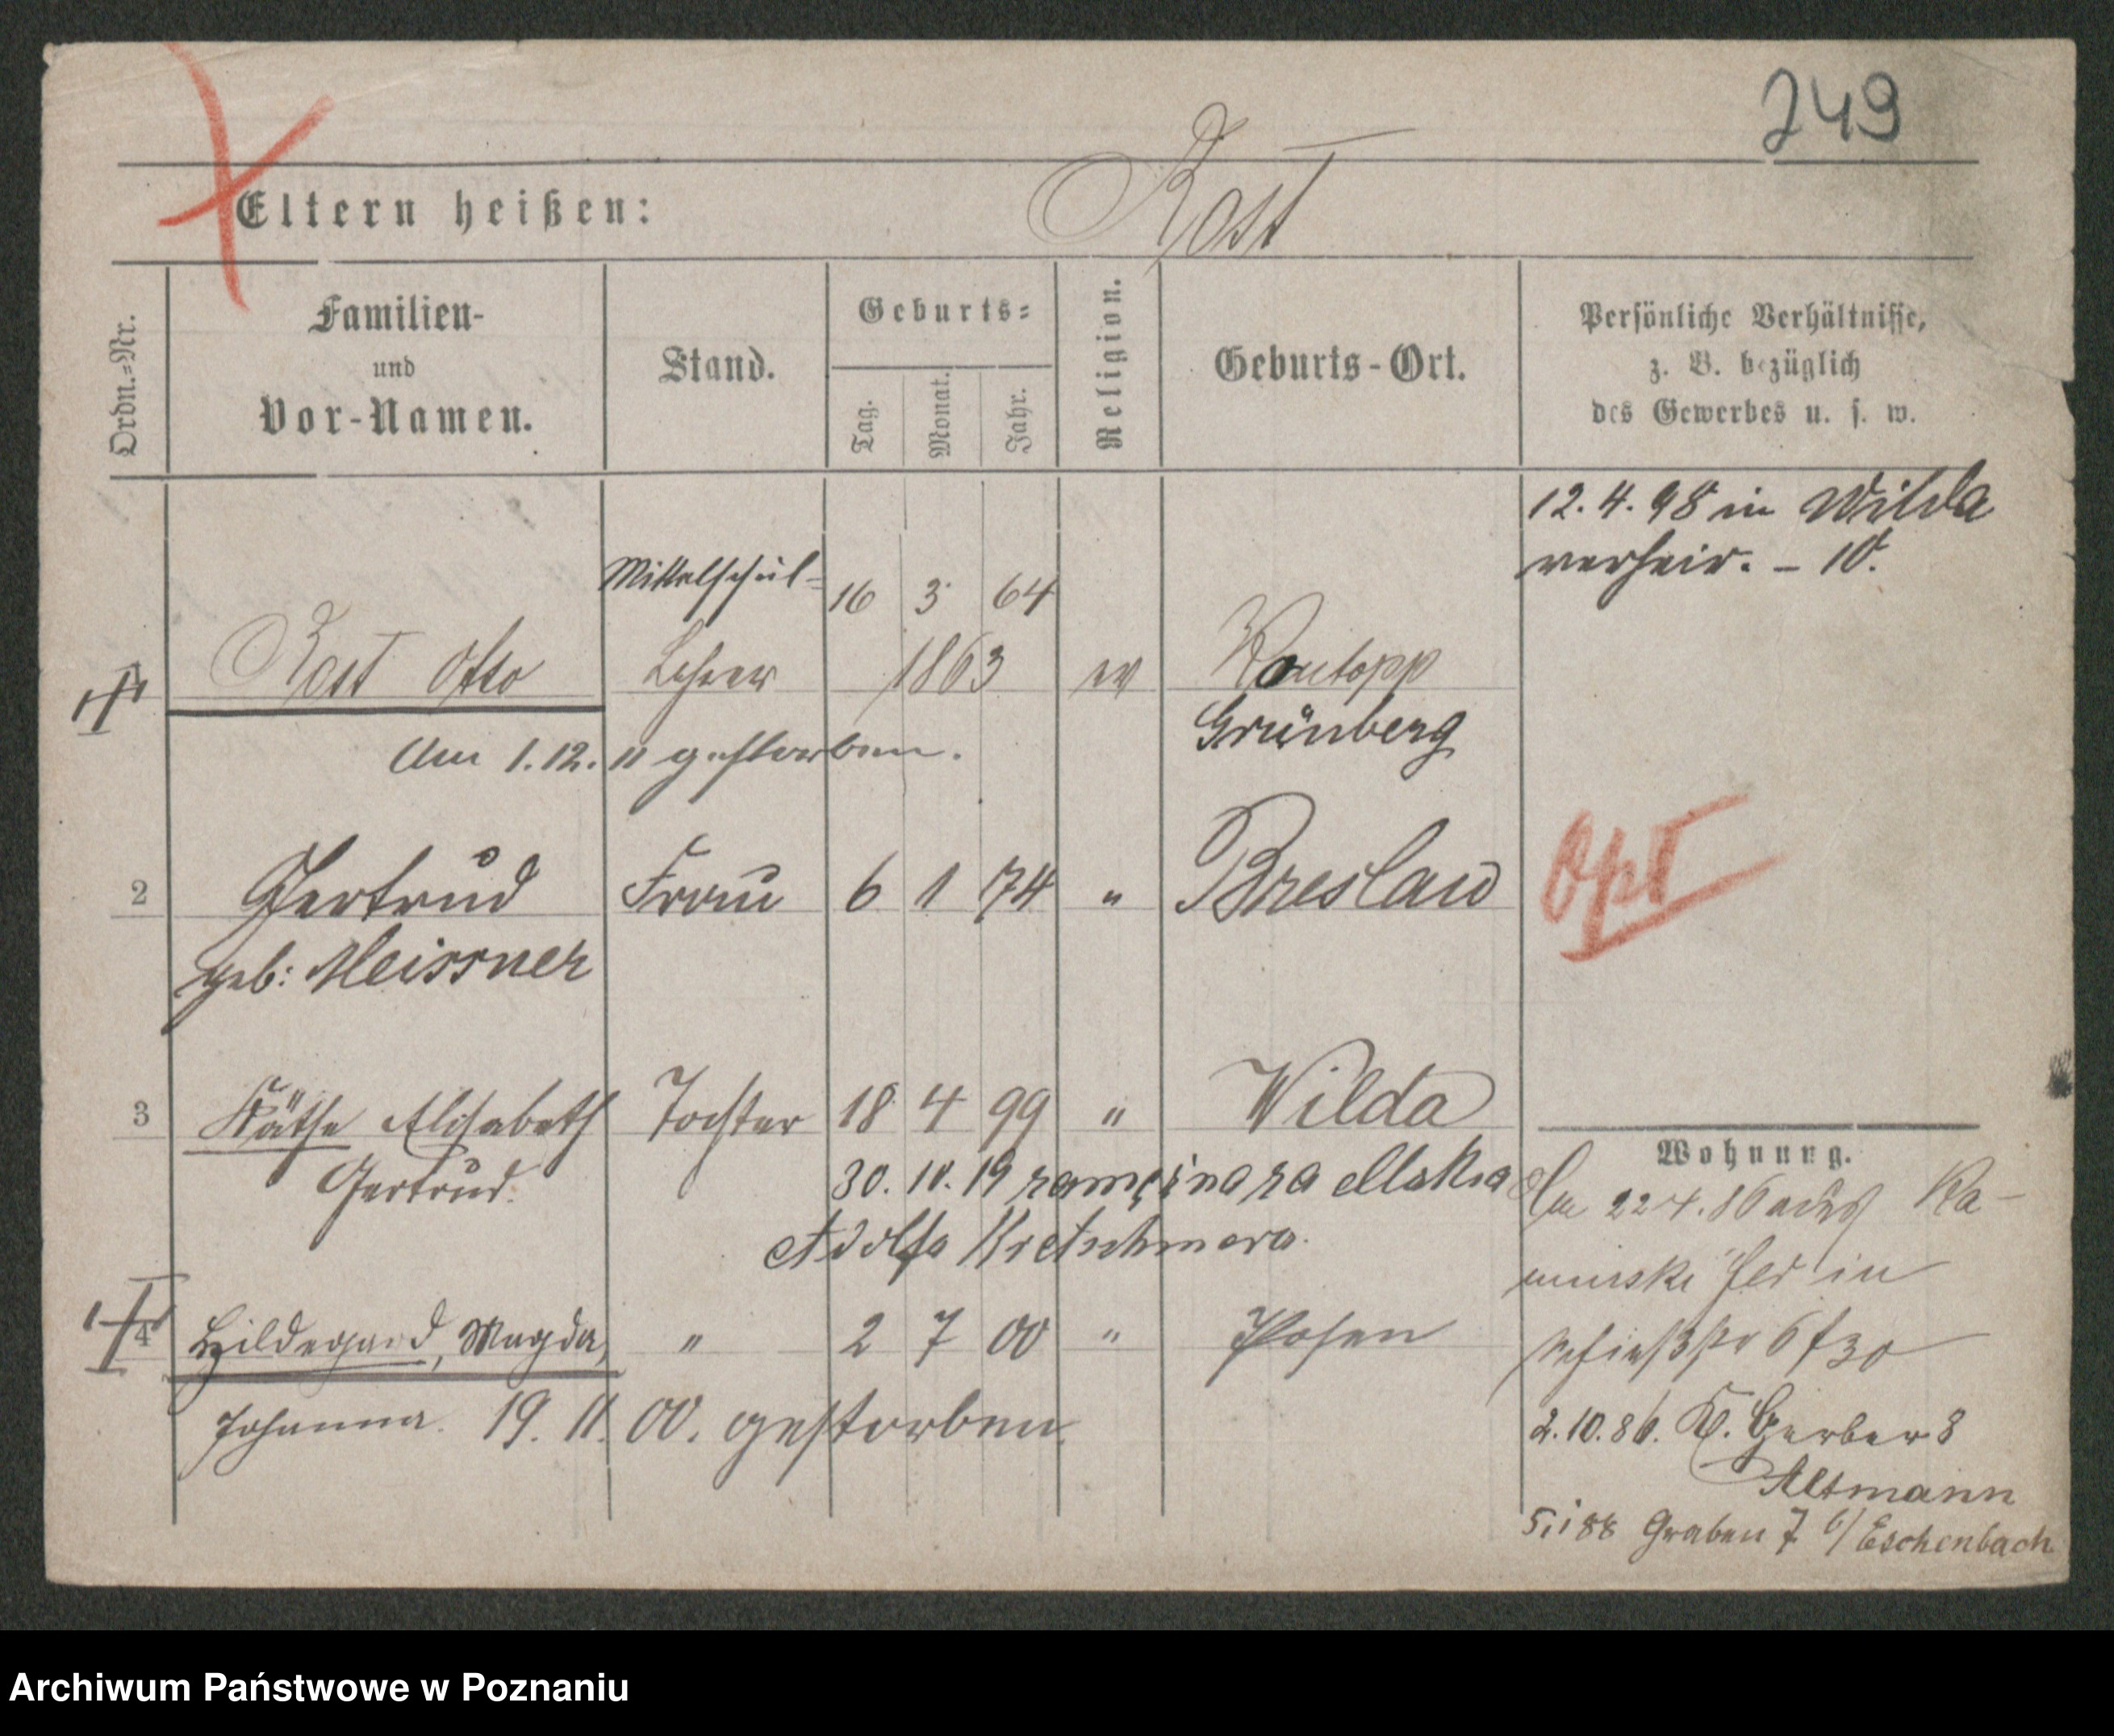 249
Eltern heißen: Rost
Ordn.=Nr.
Familien-
und
Vor-Namen.
Stand.
Geburts=
Tag.
Monat.
Jahr.
Religion.
Geburts-Ort.
Persönliche Verhältnisse,
z. B. bezüglich
des Gewerbes u. s. w.
12. 4. 98 in Wilda
verheir. –
Mittelschul=
16 3 64
Rost Otto Lehrer 1863 ev Kontopp
Grünberg
Am 1.12. 11 gestorben.
2 Gertrud Frau 6 1 74 " Breslau
geb: Meissner
Opt
3 Käthe Elisabeth Tochter 18 4 99 " Wilda
Gertrud.
30. 10. 19
Adolfa Kretschmera.
4 Hildegard, Magda, " 2 7 00 " Posen
Johanna. 19. 11. 00. gestorben.
Wohnung.
22 4. 86 aus
in
2. 10. 86. Gerber 8
Altmann
5. 1 88 Graben 7 b/ Eschenbach
Archiwum Państwowe w Poznaniu